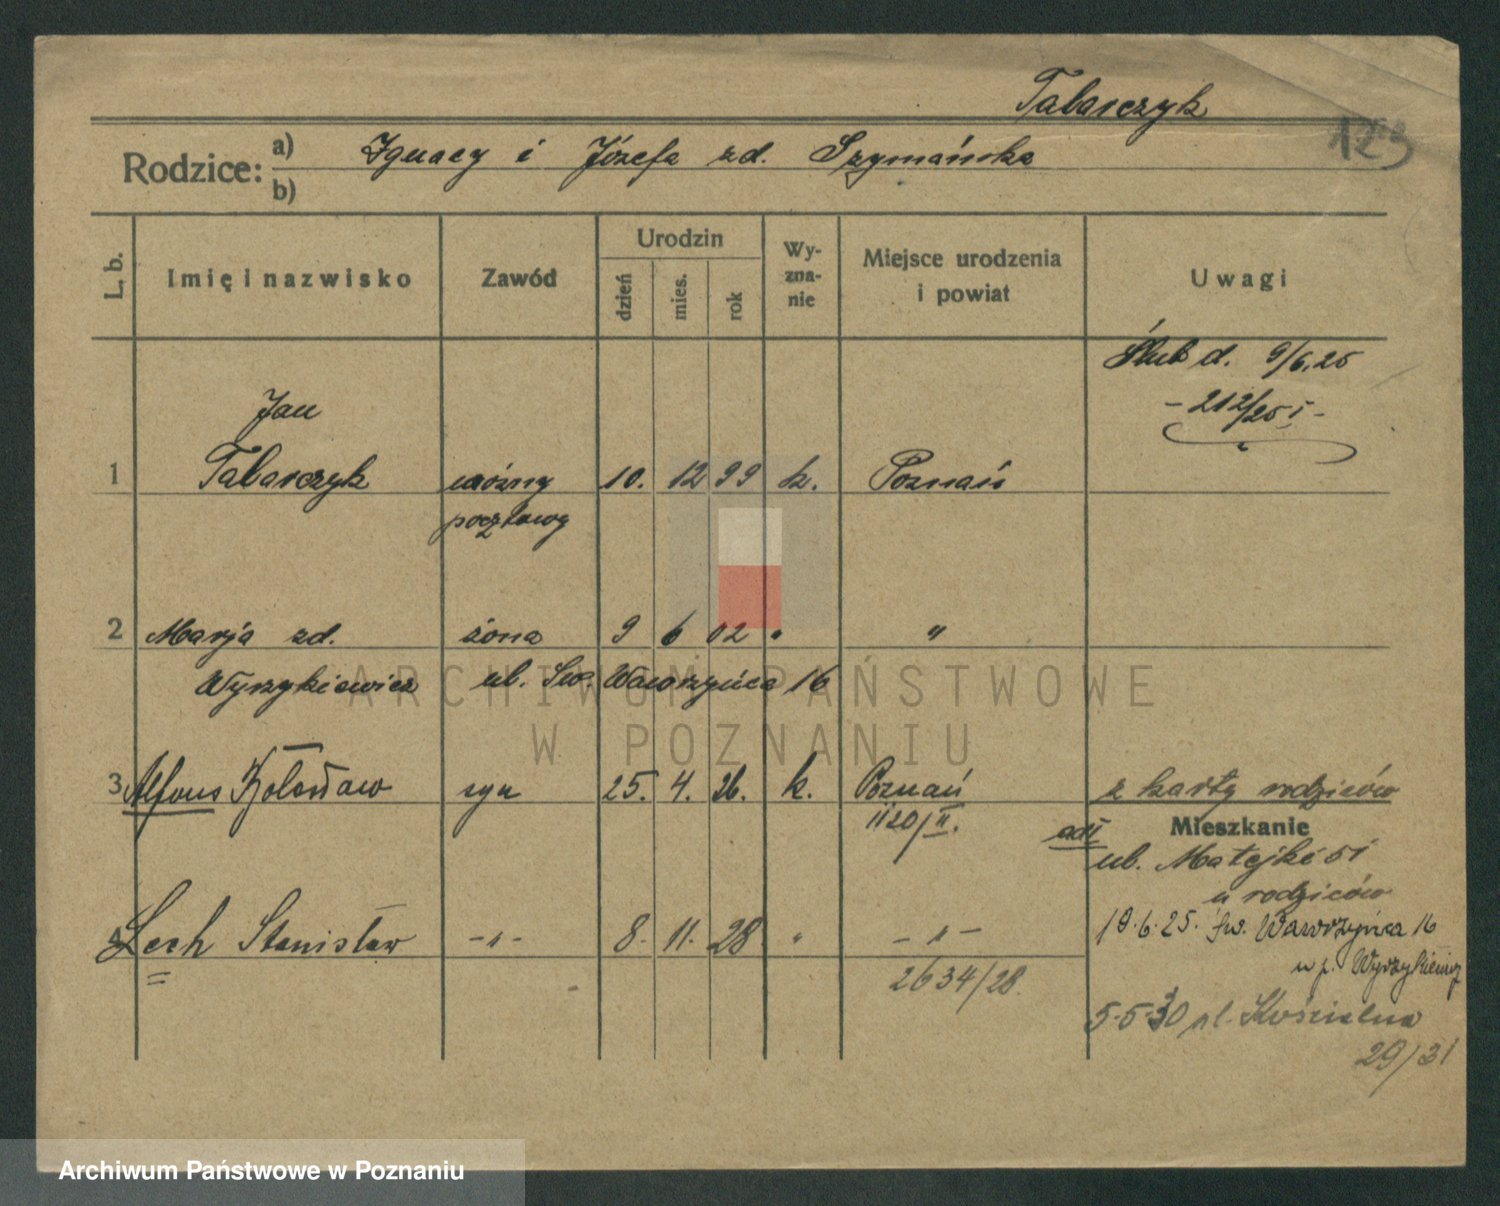 Tabarczyk
123
Rodzice: a) Ignacy i Józefa zd. Szymańska
b)
L. b. Imię i nazwisko Zawód Urodzin dzień mies. rok Wyznanie Miejsce urodzenia i powiat Uwagi
Ślub d. 9/6.25
- 212/25 I -
Jan
1 Tabarczyk woźny 10. 12 99 k. Poznań
pocztowy
2 Marja zd. żona 9 6 02 " "
Wyszykiewicz ul. Św. Wawrzyńca 16
ARCHIWUM PAŃSTWOWE
W POZNANIU
3 Alfons syn 25. 4. 26. k. Poznań z karty rodziców
1120/II. Mieszkanie
ul. Matejki 51
u rodziców
4 Lech Stanisław -"- 8. 11. 28 " -"- 19.6.25. Św. Wawrzyńca 16
2634/28. u p.
5.5.30 Kościelna
29/31
Archiwum Państwowe w Poznaniu